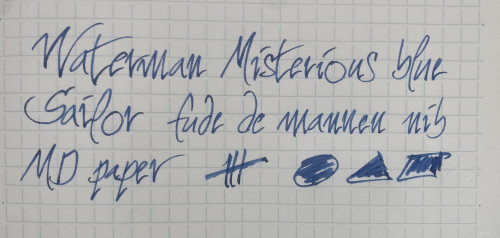 Waterman Misterious blue
Sailor fude de mannen nib
MD paper